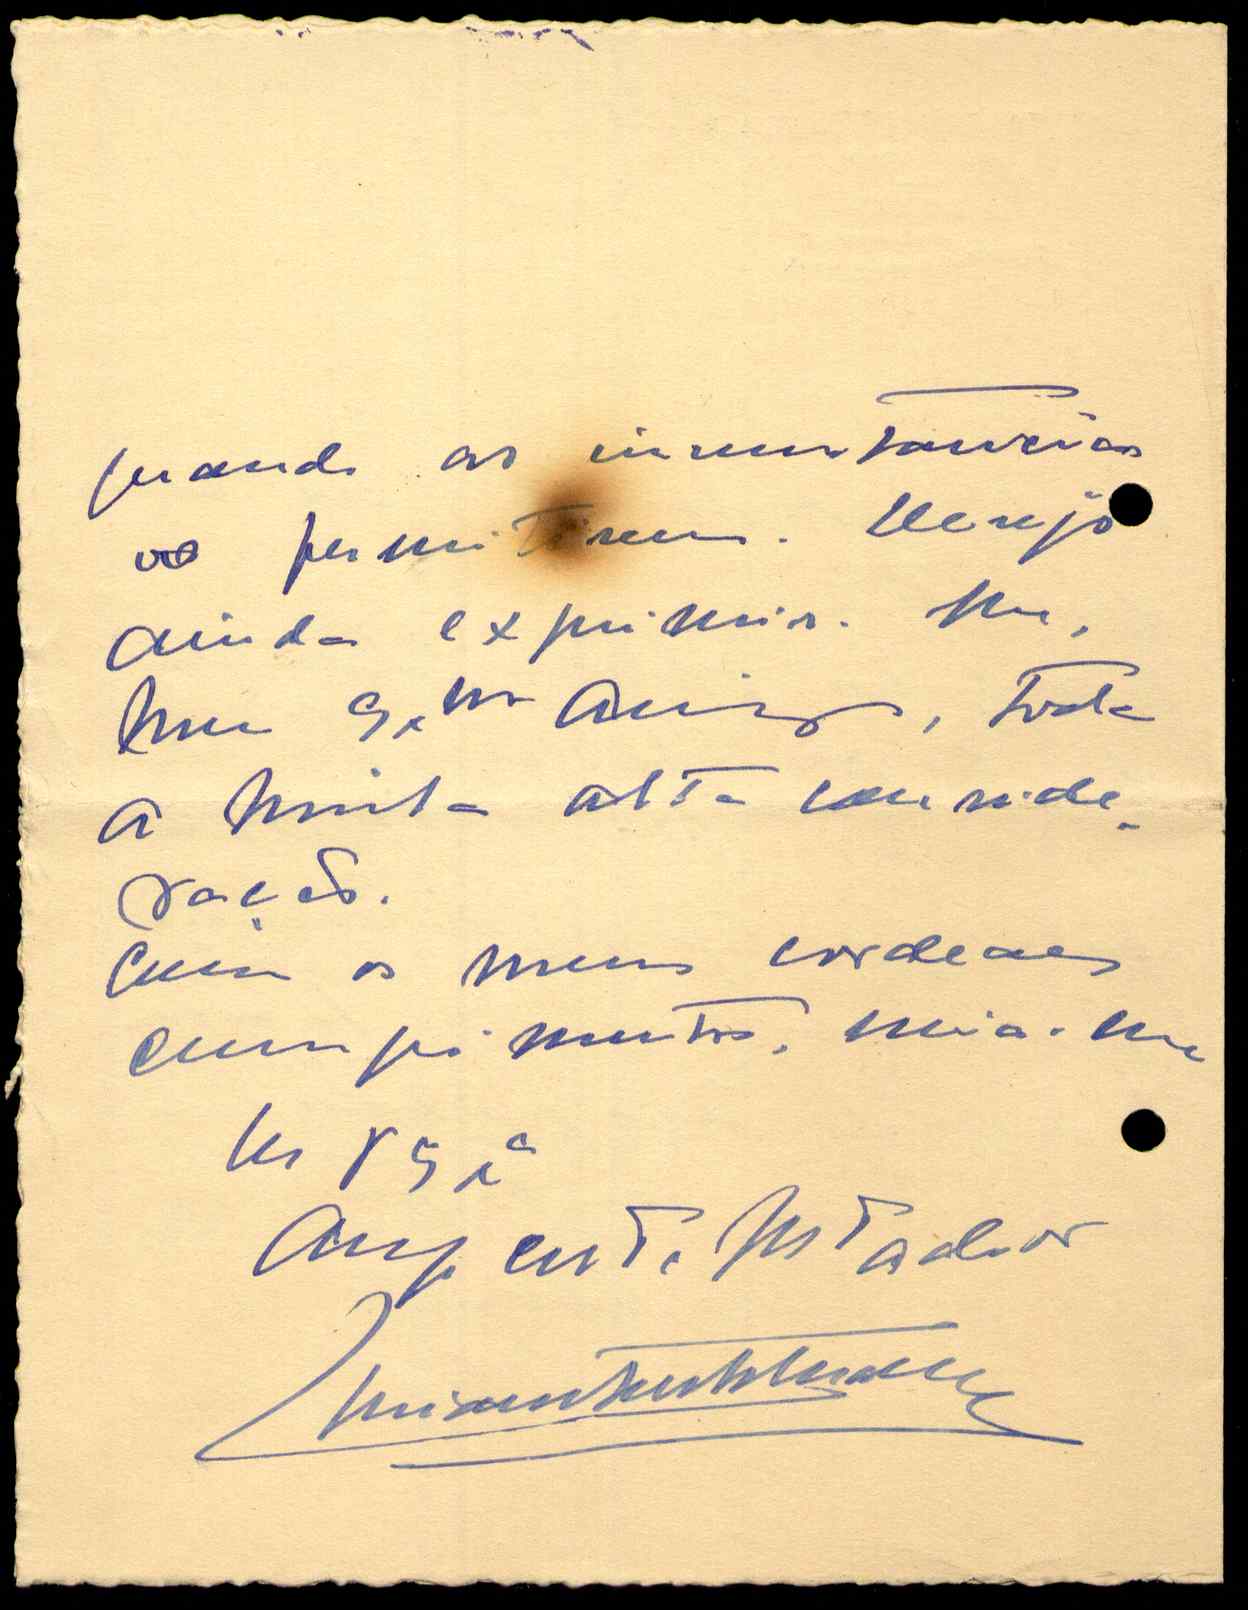 quando as circunstancias
o permitirem. Desejo
ainda exprimir-lhe,
meu Exmo Amigo, toda
a minha alta conside-
ração.
Com os meus cordeaes
cumprimentos, creia-me
De V Exa
Amg. certo, admirador